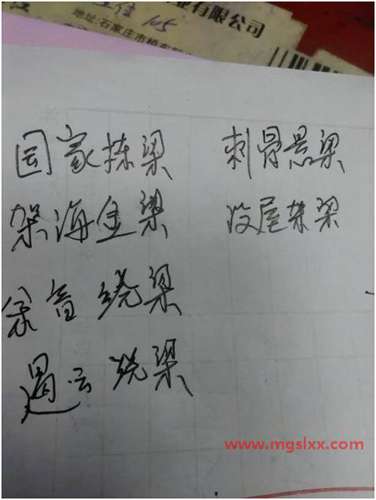 有限公司
地址:石家庄市桥东
国家栋梁 刺骨悬梁
架海金梁 屋架梁
余音绕梁
遏云绕梁
www.mgslxx.com